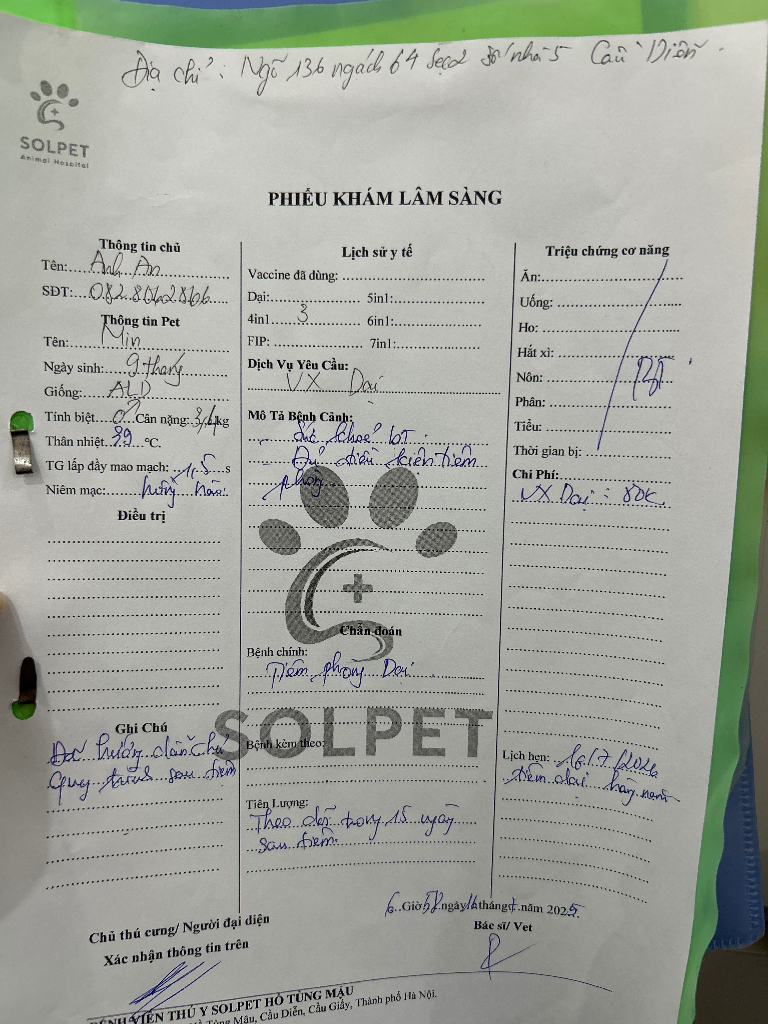 Địa chỉ: Ngõ 136 ngách 64 số nhà 5 Cầu Diễn.
SOLPET
Animal Hospital
PHIẾU KHÁM LÂM SÀNG
Thông tin chủ
Tên: Anh An
SĐT: 082.8062.8606
Thông tin Pet
Tên: Min
Ngày sinh: 9 tháng
Giống: ALD
Tính biệt ♂ Cân nặng: 3,4kg
Thân nhiệt 39 °C.
TG lấp đầy mao mạch: 1,5 s
Niêm mạc: hồng hào
Điều trị
Ghi Chú
Đã hướng dẫn chủ
quy trình sau tiêm
Lịch sử y tế
Vaccine đã dùng:
Dại: 5in1:
4in1 3 6in1:
FIP: 7in1:
Dịch Vụ Yêu Cầu:
VX Dại
Mô Tả Bệnh Cảnh:
- Sức khoẻ BT.
- Đủ điều kiện tiêm
phòng
SOLPET
Chẩn đoán
Bệnh chính:
Tiêm phòng Dại
Bệnh kèm theo:
Tiên Lượng:
Theo dõi trong 15 ngày
sau tiêm
Triệu chứng cơ năng
Ăn:
Uống:
Ho:
Hắt xì:
Nôn: BT
Phân:
Tiểu:
Thời gian bị:
Chi Phí:
VX Dại: 80K
Lịch hẹn: 16/7/2026
tiêm dại hàng năm
6 Giờ 58 ngày 16 tháng 7 năm 2025.
Chủ thú cưng/ Người đại diện
Xác nhận thông tin trên
Bác sĩ/ Vet
BỆNH VIỆN THÚ Y SOLPET HỒ TÙNG MẬU
Hồ Tùng Mậu, Cầu Diễn, Cầu Giấy, Thành phố Hà Nội.